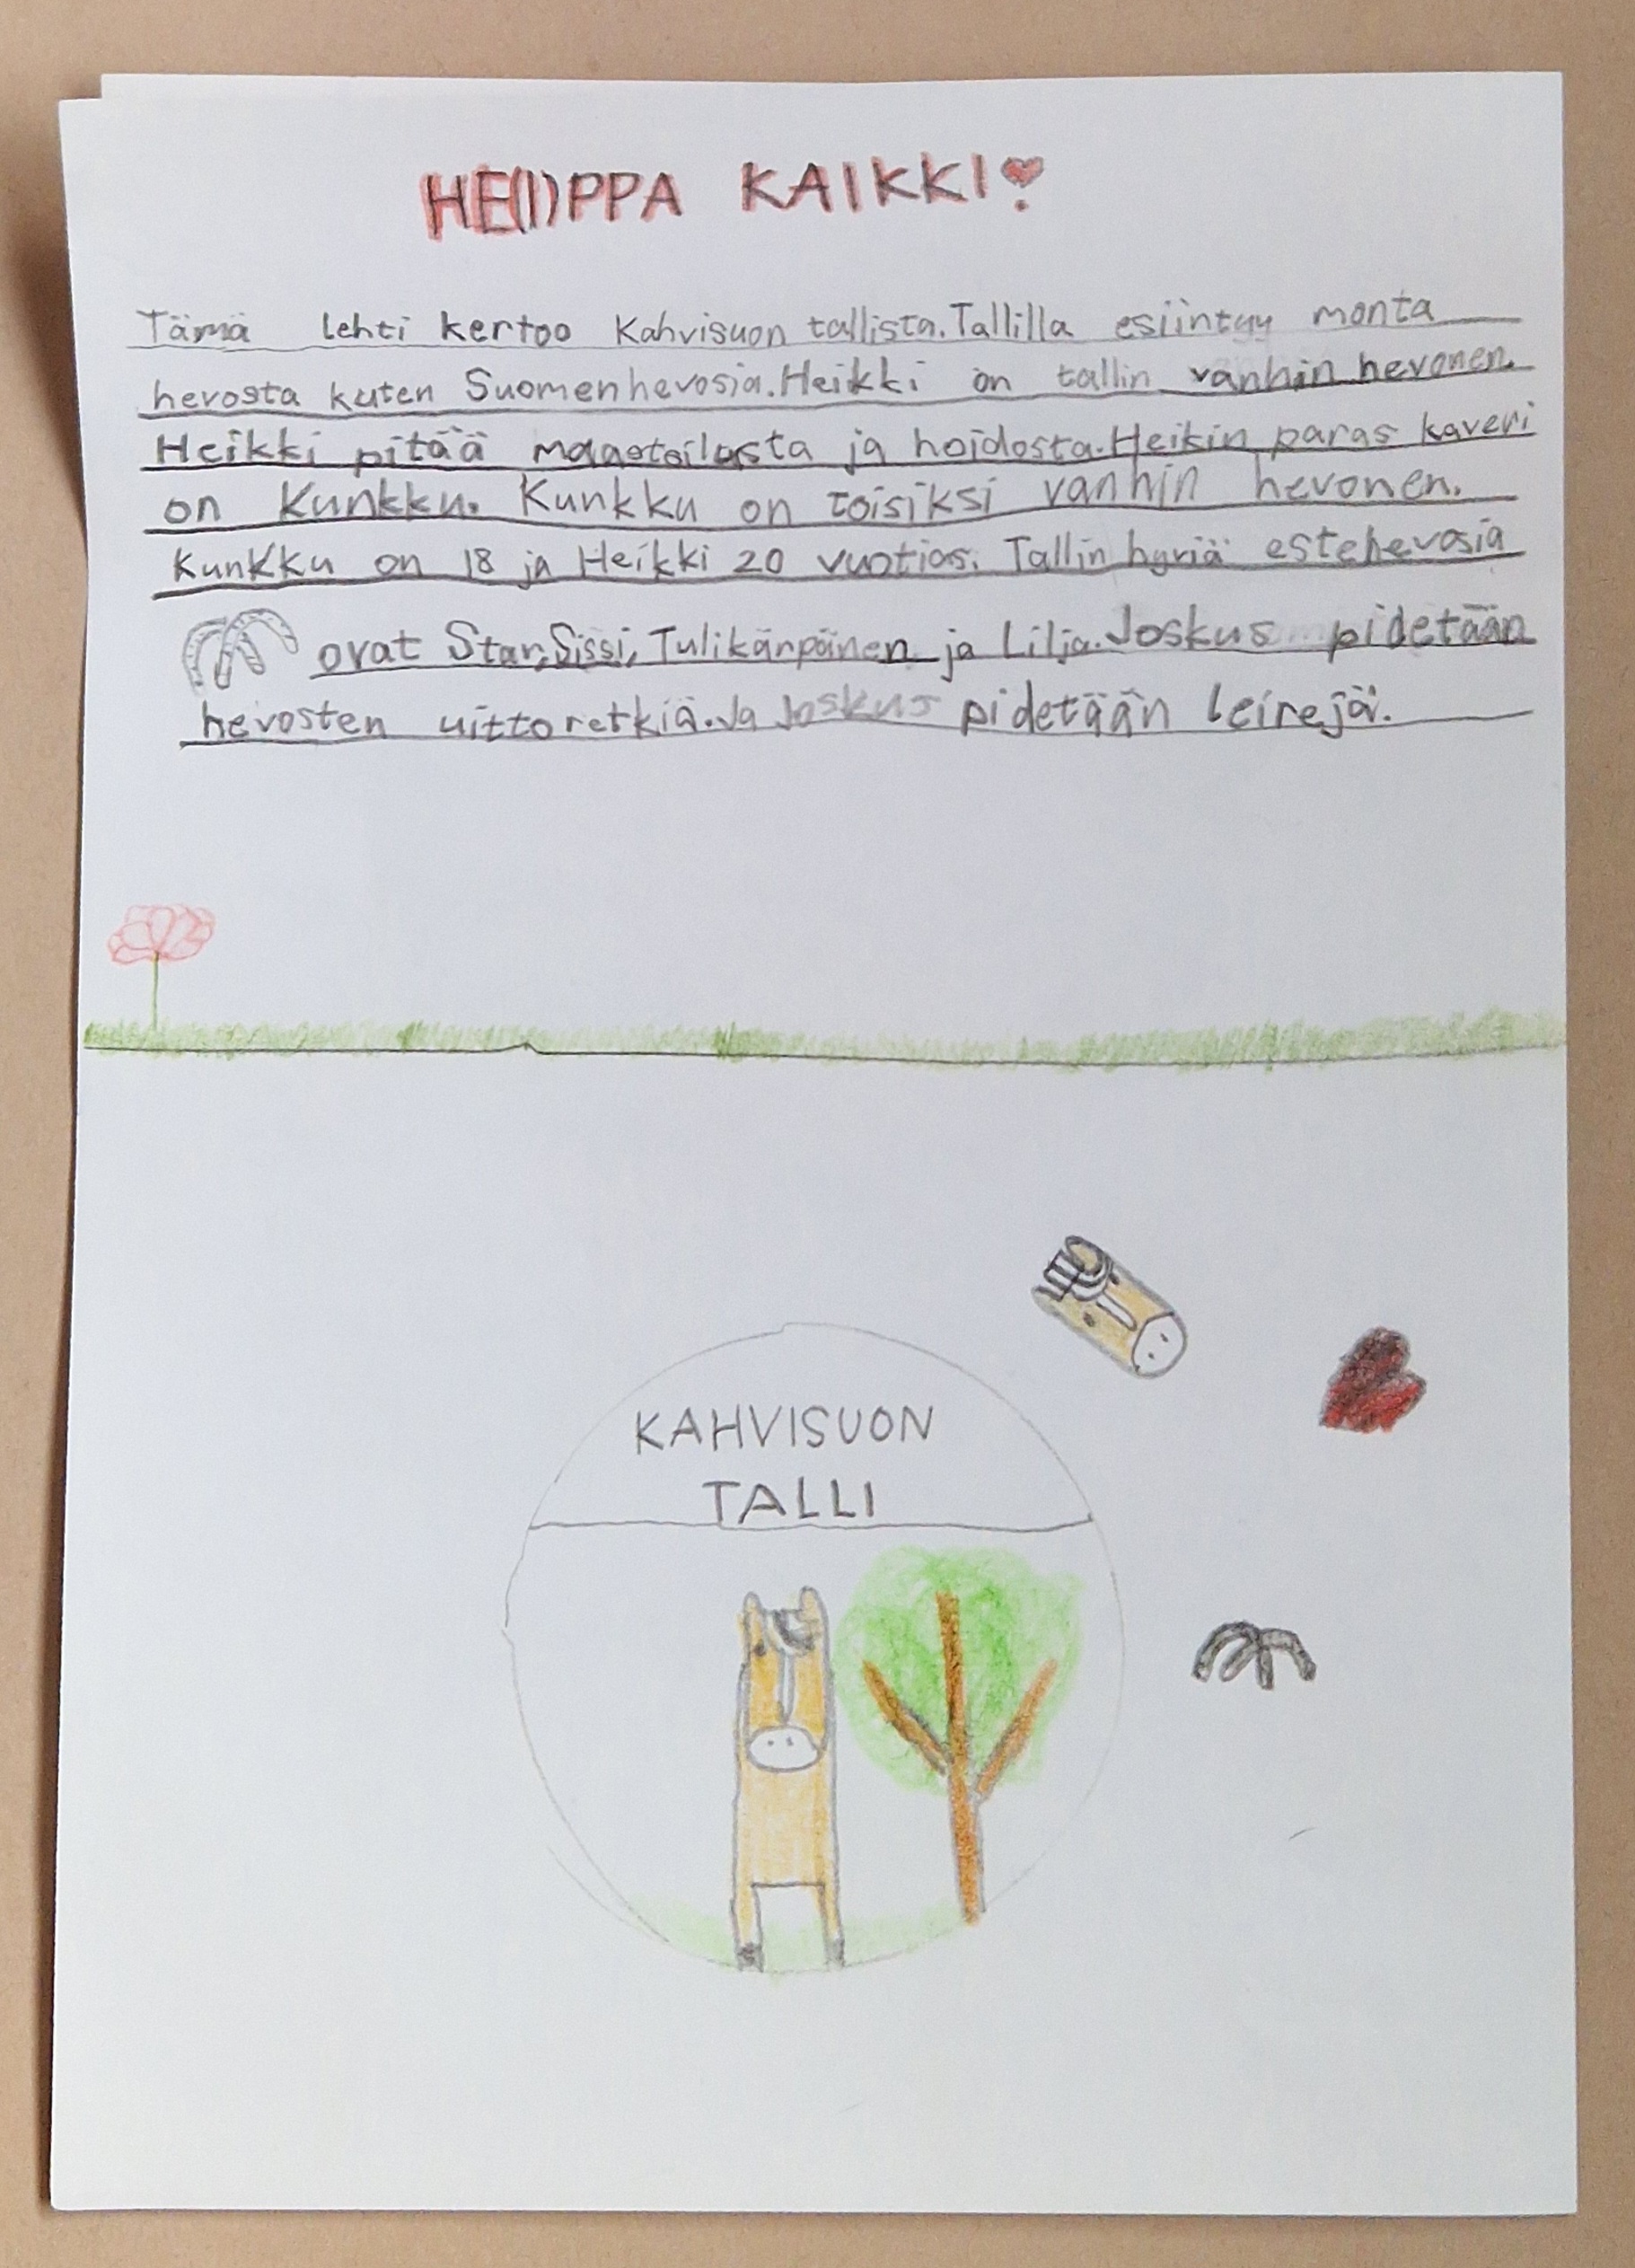 HE(I)PPA KAIKKI!
Tämä lehti kertoo Kahvisuon tallista. Tallilla esiintyy monta
hevosta kuten Suomenhevosia. Heikki on tallin vanhin hevonen.
Heikki pitää maastoilusta ja hoidosta. Heikin paras kaveri
on Kunkku. Kunkku on toisiksi vanhin hevonen.
Kunkku on 18 ja Heikki 20 vuotias. Tallin hyriä estehevosia
ovat Star, Sissi, Tulikärpäinen ja Lilja. Joskus pidetään
hevosten uittoretkiä. Ja Joskus pidetään leirejä.
KAHVISUON
TALLI